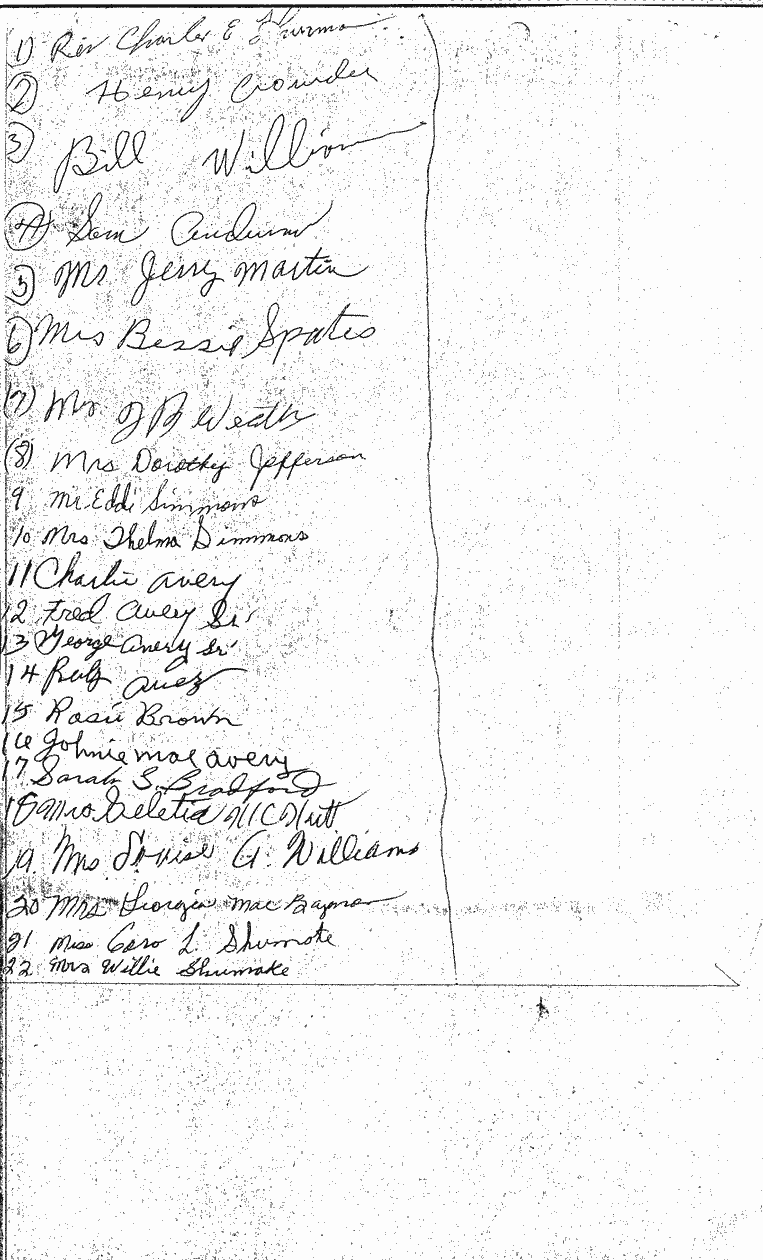 1) Rev Charles E Thurman
2 Henry Crowder
3) Bill William
4 Sam Anderson
5 Mr Jerry Martin
6) Mrs Bessie Spates
(7) Mr J B
(8) Mrs Dorothy Jefferson
9 Mr. Eddi Simmons
10 Mrs Thelma Simmons
11 Charlie avery
12 Fred avery Sr.
13 George avery Sr.
14 Ruby
15 Rosie Brown
16 Johnie mae avery
17 Sarah S. Bradford
18 Mrs. Celetia McNutt
19. Mrs Louise G. Williams
20 Mrs Georgia Mae
21 Miss L. Shumate
22 Mrs Willie Shumake